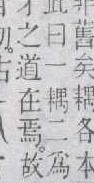 非舊矣耦各本
此曰一耦二爲
才之道在焉故